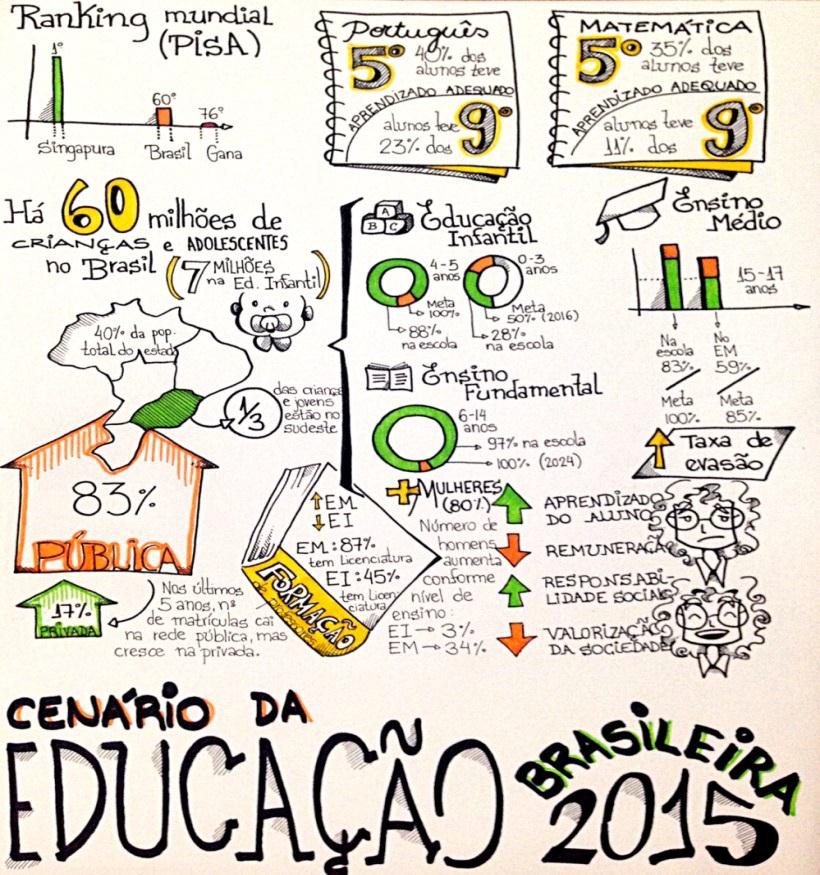 Ranking mundial
(PISA)
1º
60º
76º
Singapura
Brasil
Gana
Português
5º 40% dos
alunos teve
APRENDIZADO ADEQUADO
alunos teve
23% dos
9º
MATEMÁTICA
5º 35% dos
alunos teve
APRENDIZADO ADEQUADO
alunos teve
11% dos
9º
Há 60 milhões de
CRIANÇAS e ADOLESCENTES
no Brasil (7 MILHÕES
na Ed. Infantil)
40% da pop.
total do estado
1/3
das crianças
e jovens
estão no
sudeste
83%
PÚBLICA
17%
PRIVADA
Nos últimos
5 anos, nº
de matrículas cai
na rede pública, mas
cresce na privada.
A
B C
Educação
Infantil
4-5
anos
Meta
100%
88%
na escola
0-3
anos
Meta
50% (2016)
28%
na escola
Ensino
Fundamental
6-14
anos
97% na escola
100% (2024)
Ensino
Médio
15-17
anos
Na
escola
83%
Meta
100%
No
EM
59%
Meta
85%
Taxa de
evasão
EM
EI
EM: 87%
tem Licenciatura
EI: 45%
tem Licen
ciatura
FORMAÇÃO
+ MULHERES
(80%)
Número de
homens
aumenta
conforme
nível de
ensino:
EI → 3%
EM → 34%
APRENDIZADO
DO ALUNO
REMUNERAÇÃO
RESPONSABI-
LIDADE SOCIAL
VALORIZAÇÃO
DA SOCIEDADE
CENÁRIO DA
EDUCAÇÃO
BRASILEIRA
2015